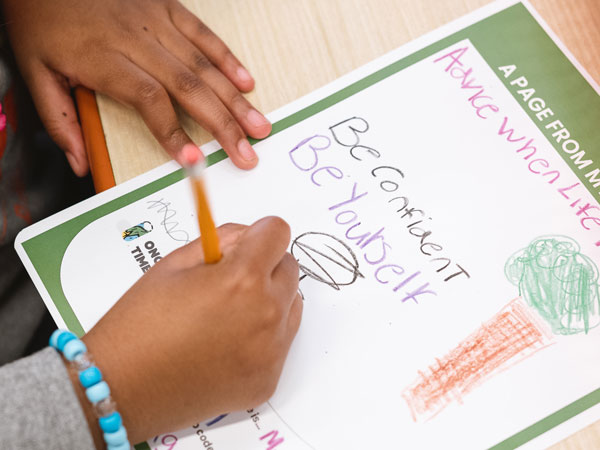 A PAGE FROM M
Advice when Life
Be confident
Be Yourself
ONC
TIME
is...